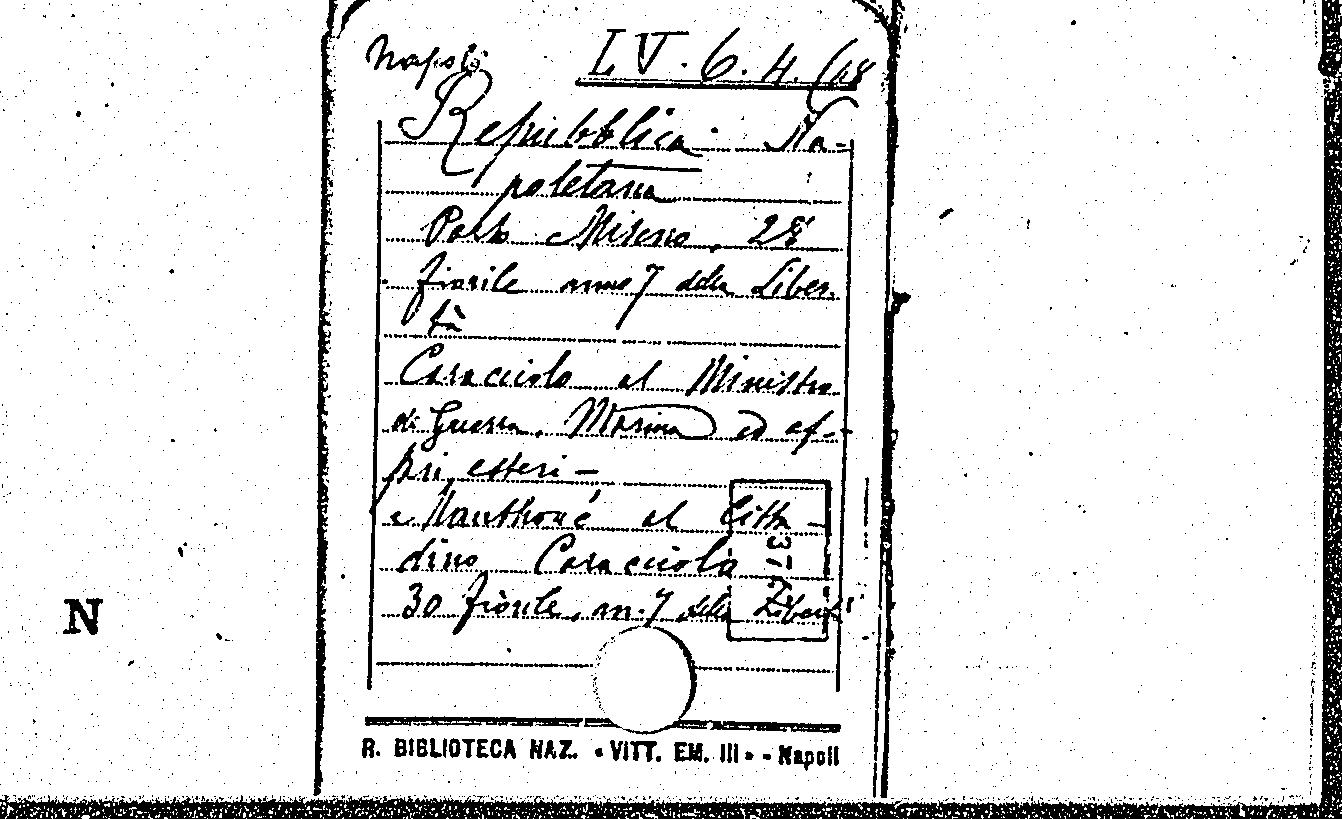 Napoli LV.6.4.(48
Repubblica Na-
poletana
Porto Miseno, 28
fiorile anno 7 della Liber.
tà
Caracciolo al Ministro
di Guerra, Marina ed af-
fari esteri —
e Manthoné al Citta-
dino Caracciolo
30 fiorile, an. 7 della Libertà
N
R. BIBLIOTECA NAZ. « VITT. EM. III » - Napoli